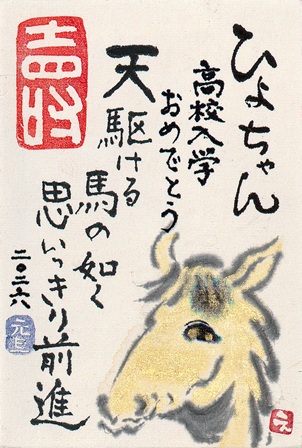 ひよちゃん
高校入学
おめでとう
天駆ける
馬の如く
思いっきり前進
二〇二六
え